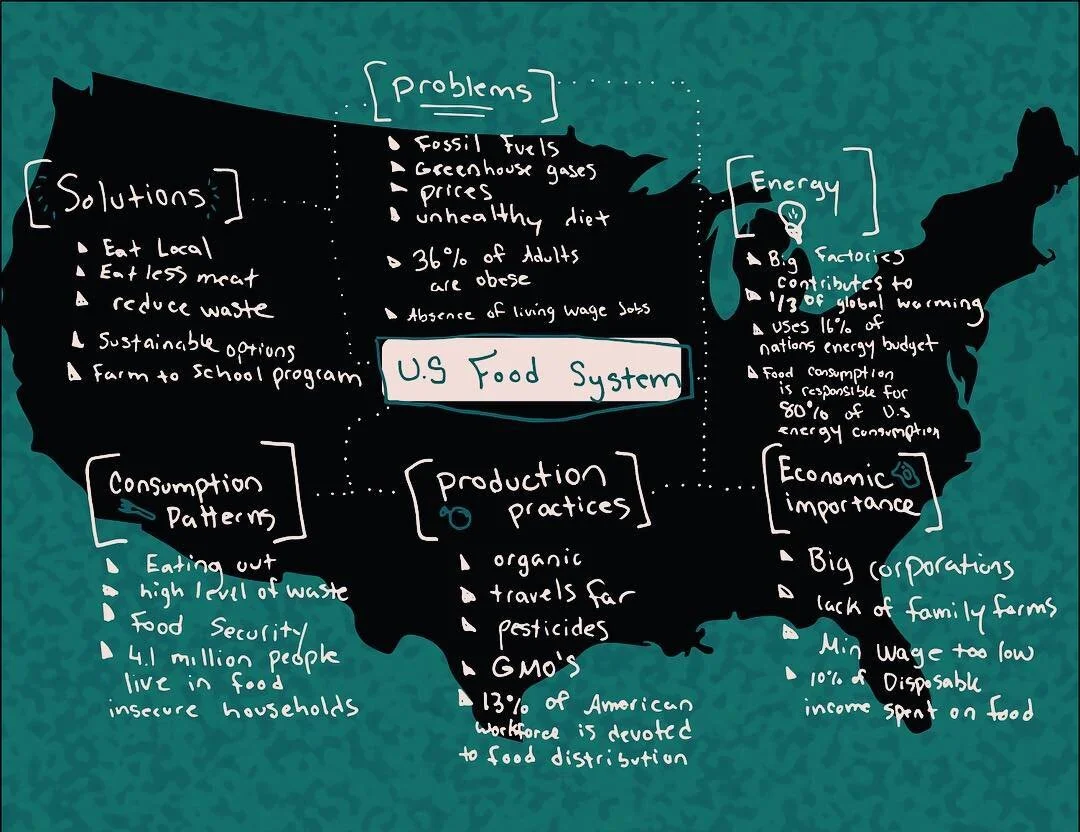 Problems
Fossil Fuels
Greenhouse gases
prices
unhealthy diet
36% of Adults
are obese
Absence of living wage Jobs
Solutions
Eat Local
Eat less meat
reduce waste
Sustainable options
Farm to School program
Energy
Big Factories
contributes to
1/3 of global warming
uses 16% of
nations energy budget
Food consumption
is responsible for
80% of U.S
energy consumption
U.S Food System
Consumption
Patterns
Eating out
high level of waste
Food Security
4.1 million people
live in food
insecure households
Production
practices
organic
travels far
pesticides
GMO's
13% of American
workforce is devoted
to food distribution
Economic
importance
Big corporations
lack of family farms
Min wage too low
10% of Disposable
income spent on food